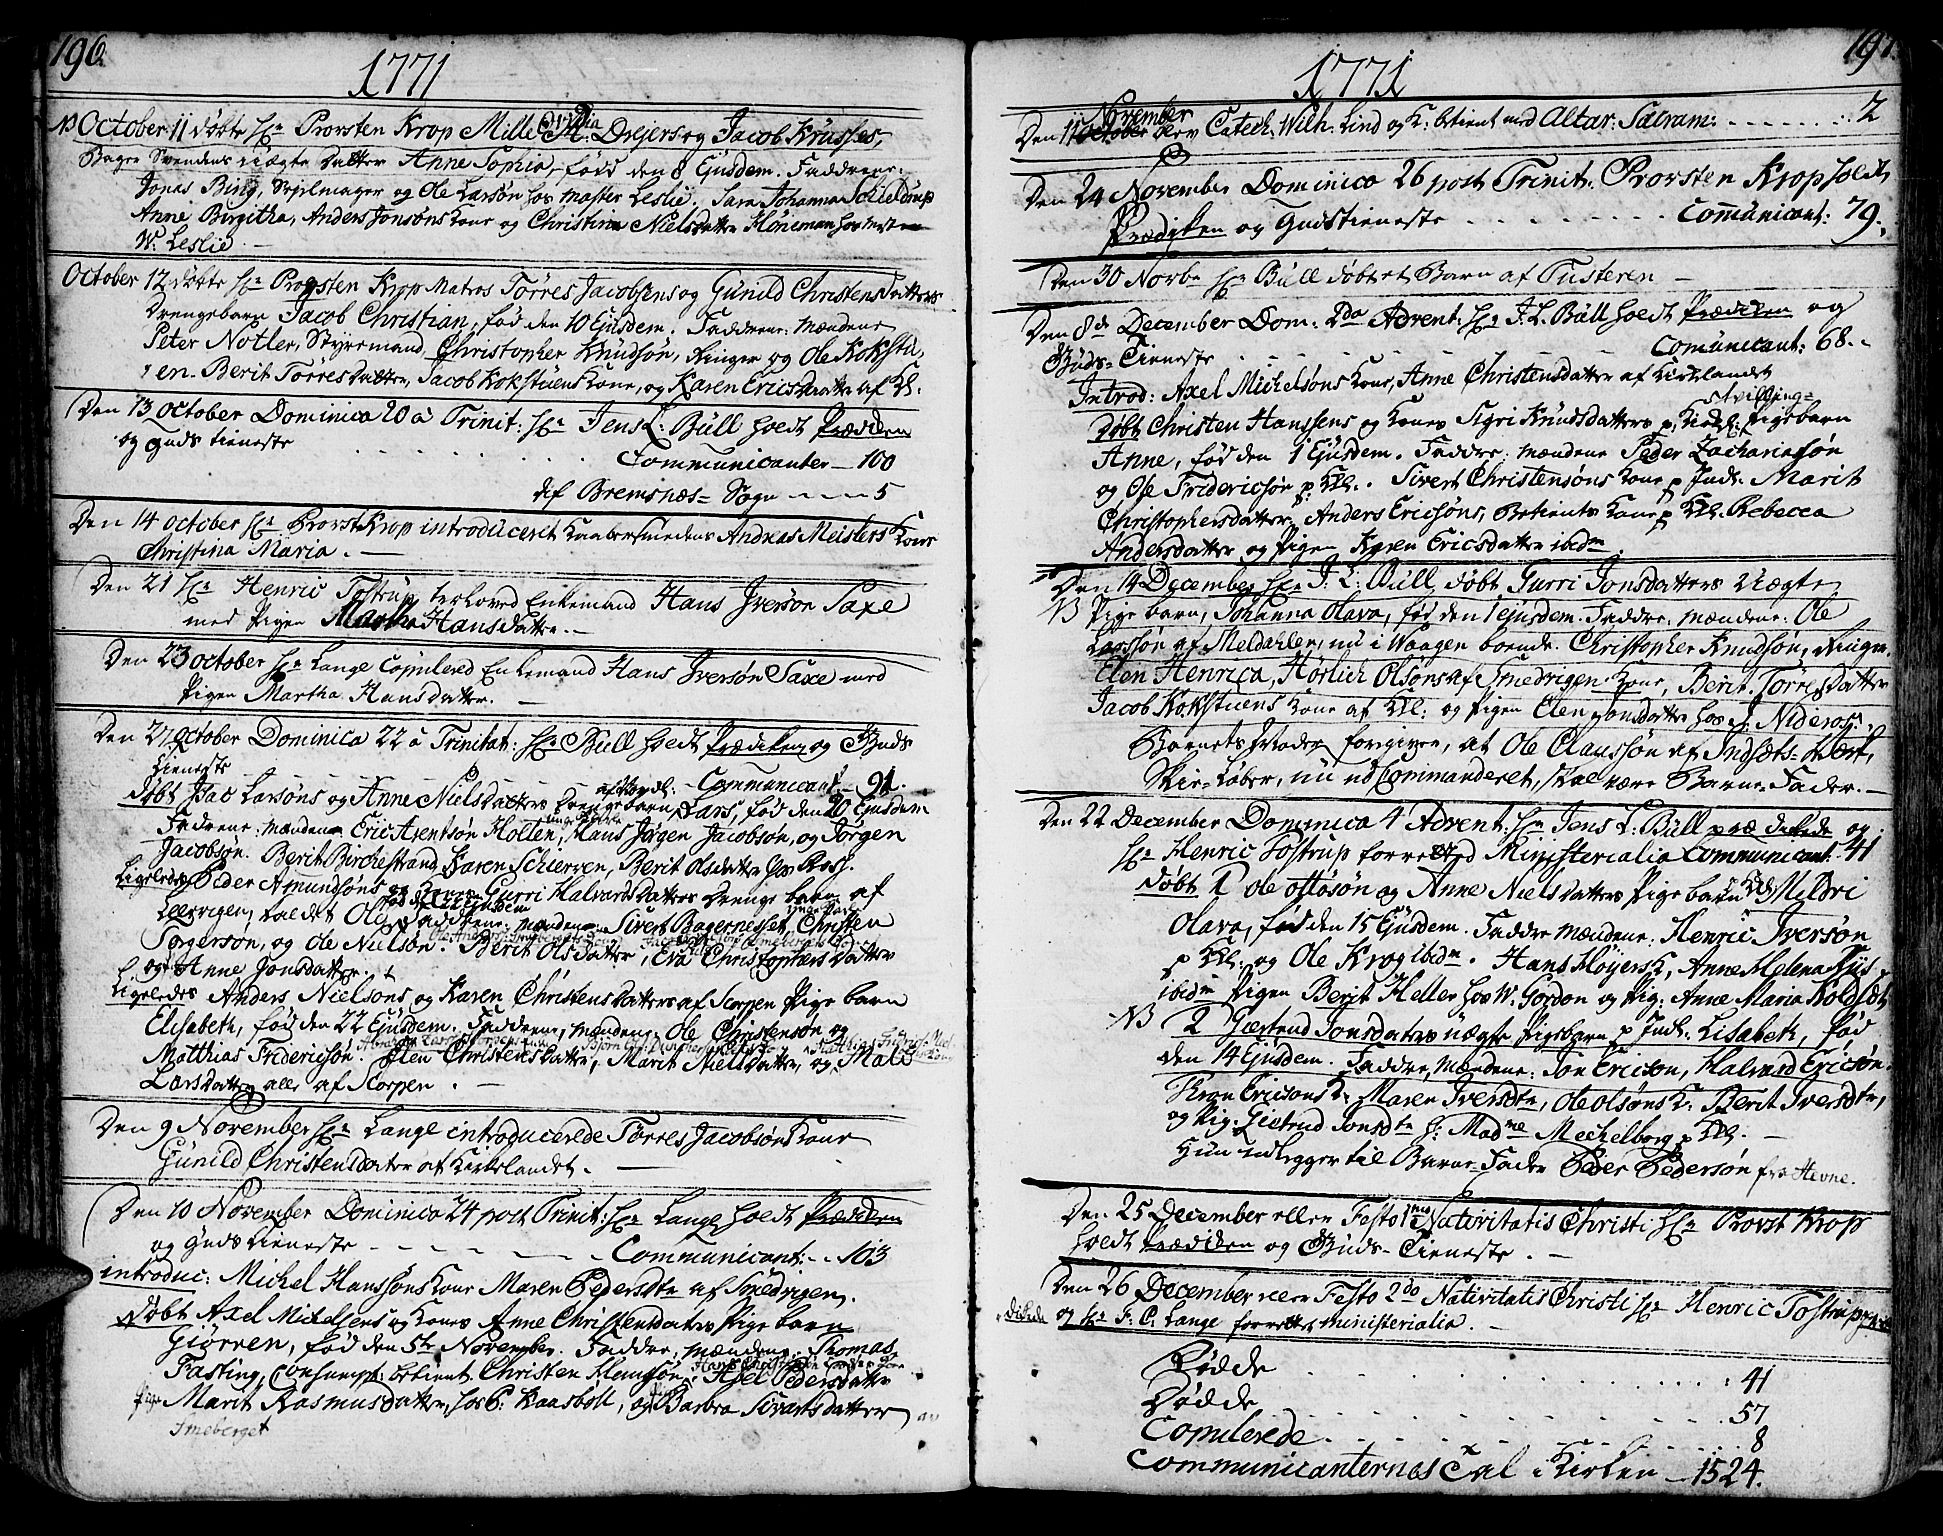 196.
1771
NB October 11 döbte Hr Provsten Krop Mille Ovidia M: Drejers og Jacob Krushes,
Bager Svendens Uægte Datter Anne Sophia, föd den 8 Ejusdem. Faddrene:
Jonas Bing, Sejlmager og Ole Larsön hos Master Leslie. Sara Johanna Schieldrup
Anne Birgitha, Anders Jonsöns Kone og Christina Nielsdatter
W. Leslie. -
October 12 döbte Hr Provsten Krop Matros Törres Jacobsens og Gunild Christens Datters
Drengebarn Jacob Christian, föd den 10 Ejusdem. Faddrene: Mændene
Peter Notler, Styrmand Christopher Knudsön, Ringer og Ole Kokstu,
en. Berit Törresdatter, Jacob Kokstuens Kone, og Karen Ericsdatter af Kl.
Den 13 October Dominica 20 a Trinit: Hr Jens L: Büll holdt Prædiken
og Guds tieneste
Communicanter - 100
Af Bremsnæs = Sogn - - - 5
Den 14 October Hr Provst Krop introduceret Kaabersmedens Andreas Meisters Kone
Christina Maria. -
Den 21 Hr Henric Tostrup terloved Enkemand Hans Iversön Saxe
med Pigen Martha Hansdatter. -
Den 23 October Hr Lange Copulered Enkemand Hans Iversön Saxe med
Pigen Martha Hansdatter. -
Den 27 October Dominica 22 a Trinitat: Hr Büll holdt Prædiken og Guds
tieneste
Communicant - 91.
döbt Isac Larsöns og Anne Nielsdatters Drengebarn Lars, föd den 20 Ejusdem
Faddrene: mændene Eric Arentsön Hollen, Hans Jörgen Jacobsön, og Jörgen
Jacobsön. Berit Birchestrand, Karen Schierven, Berit Olsdatter hos Ross.
Ligeledes Peder Amundsöns og Kones Gurri Halvards datters Drenge barn af
Leervigen, kaldet Ole, Faddrene: mændene Sivert Bagernesset, Christen
Törgersön, og Ole Nielsön. Berit Olsdatter, Eva Christophers datter
og Anne Jonsdatter.
Ligeledes Anders Nielsöns og Karen Christensdatters af Scorpen Pige barn
Elisabeth, föd den 22 Ejusdem. Faddrene, mændene: Ole Christensön og
Matthias Fridericsön. Elen Christensdatter, Marit Nielsdatter, og Male
Larsdatter alle af Scorpen. -
Den 9 November Hr Lange introducerede Törres Jacobsön Kone
Günild Christensdatter af Kirkelandet. -
Den 10 November Dominica 24 post Trinit: Hr Lange holdt Prædiken
og Guds tieneste - - - Communicant: - 103
introduc: Michel Hanssöns Kone Maren Pedersdtr af Smedvigen.
Döbt Axel Mickelsens og Kones Anne Christensdatters Pige barn
Giörren, föd den 5te November. Faddre, mændene: Thomas
Fasting, Consumpt: betient Christen Klemsön, Axel Pedersdatter
Pige Marit Rasmusdatter, hos P: Kaasböll, og Barbra Sivartsdatter
Smeberget
197.
1771
Den 11 November October blev Catech. Wilh. Lind og K: betient med Altar: Sacram: - - - 2
Den 24 November Dominica 26 post Trinit: Provsten Krop holdt
Prædiken og Gudstieneste - - - Communicant: 79.
Den 30 Novbr Hr Büll döbt et Barn af Tusteren -
Den 8de December Dom: 2da Advent: Hr J. L. Büll holdt Prædiken og
Guds = Tieneste - - - Comunicant: 68. -
Introd: Axel Michelsöns Kone, Anne Christensdatter af Kirkelandet
tvilling =
Döbt Christen Hanssens og Kones Sigri Knudsdatters p. Kirkl: Pigebarn
Anne, föd den 1 Ejusdem. Faddre: mændene Peder Zachariasön
og Ole Fridericsön p. Kl. Sivert Christensöns Kone p Indl. Marit
Christophersdatter, Anders Ericsöns, Betients Kone p Kl. Rebecca
Andersdatter og Pigen Karen Ericsdatter ibidm.
Den 14 December Hr J. L: Büll döbt Gurri Jonsdatters Uægte
NB Pige barn, Johanna Olava, föd den 1 Ejusdem. Faddre: mændene: Ole
Larssön af Meldahlen, nu i Waagen boende. Christopher Knudsön, Ringer.
Elen Henrica, Hörlich Olsöns af Smedvigen Kone, Berit Törresdatter
Jacob Kokstuens Kone af Kl: og Pigen Elen Jonsdatter hos J. Nideros.
Barnets Moder foregiver, at Ole Claussön af Indsæts-Værk,
Skie-Löber, nu ud Commanderet, skal være Barne-Fader. -
Den 22 December Dominica 4 Advent: Hr Jens L: Büll prædikede og
Hr Henric Tostrup forretted Ministerialia Communicant: 41
döbt 1 Ole Ottösön og Anne Nielsdatters Pige barn Mildri
Olava, föd den 15 Ejusdem. Faddre mændene. Henric Iversön
p Kl: og Ole Krog ibidm. Hans Möyers K, Anne Melena Kiis
ibidm Pigen Berit Heller hos W: Gordon og Pig: Anne Maria Koldset
NB 2 Giertrud Jonsdatters uægte Pigebarn p Indl: Lisabeth, föd
den 14 Ejusdem. Faddre, mændene: Jon Ericsön, Halvard Ericsön.
Iver Ericsöns K: Maren Iversdtr, Ole Olsöns K: Berit Iversdtr,
og Pig: Giertrud Jonsdtr h: Madme Mechelborg p Kl. -
Hun udlegger til Barne-Fader Peder Pedersön fra Hevne.
Den 25 December eller Festo 1mo Nativitatis Christi Hr Provst Krop
holdt Prædiken og Guds-Tieneste. -
Den 26 December eller Festo 2do Nativitatis Christi Hr Henric Tostrup præ=
dikede og Hr F. C. Lange forrettet ministerialia. -
Födde - - - 41
Dödde - - - 57
Copulerede - - - 8
Communicanternes Tal i Kirken - 1524.